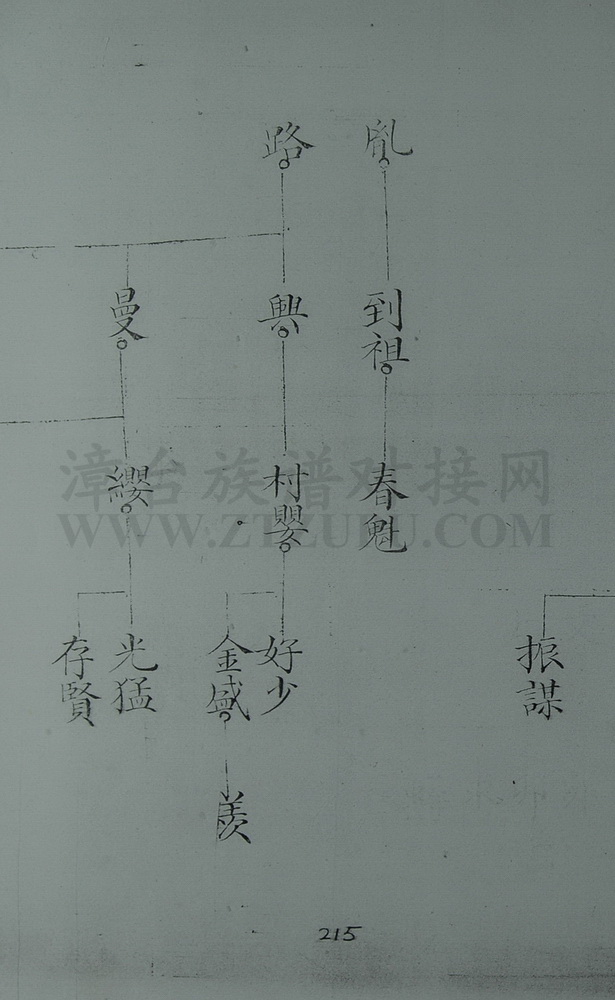 振謀
胤
到祖
春魁
路
興
村嬰
好少
金盛
羨
曼
纓
光猛
存賢
漳台族谱对接网
WWW.ZTZUPU.COM
215